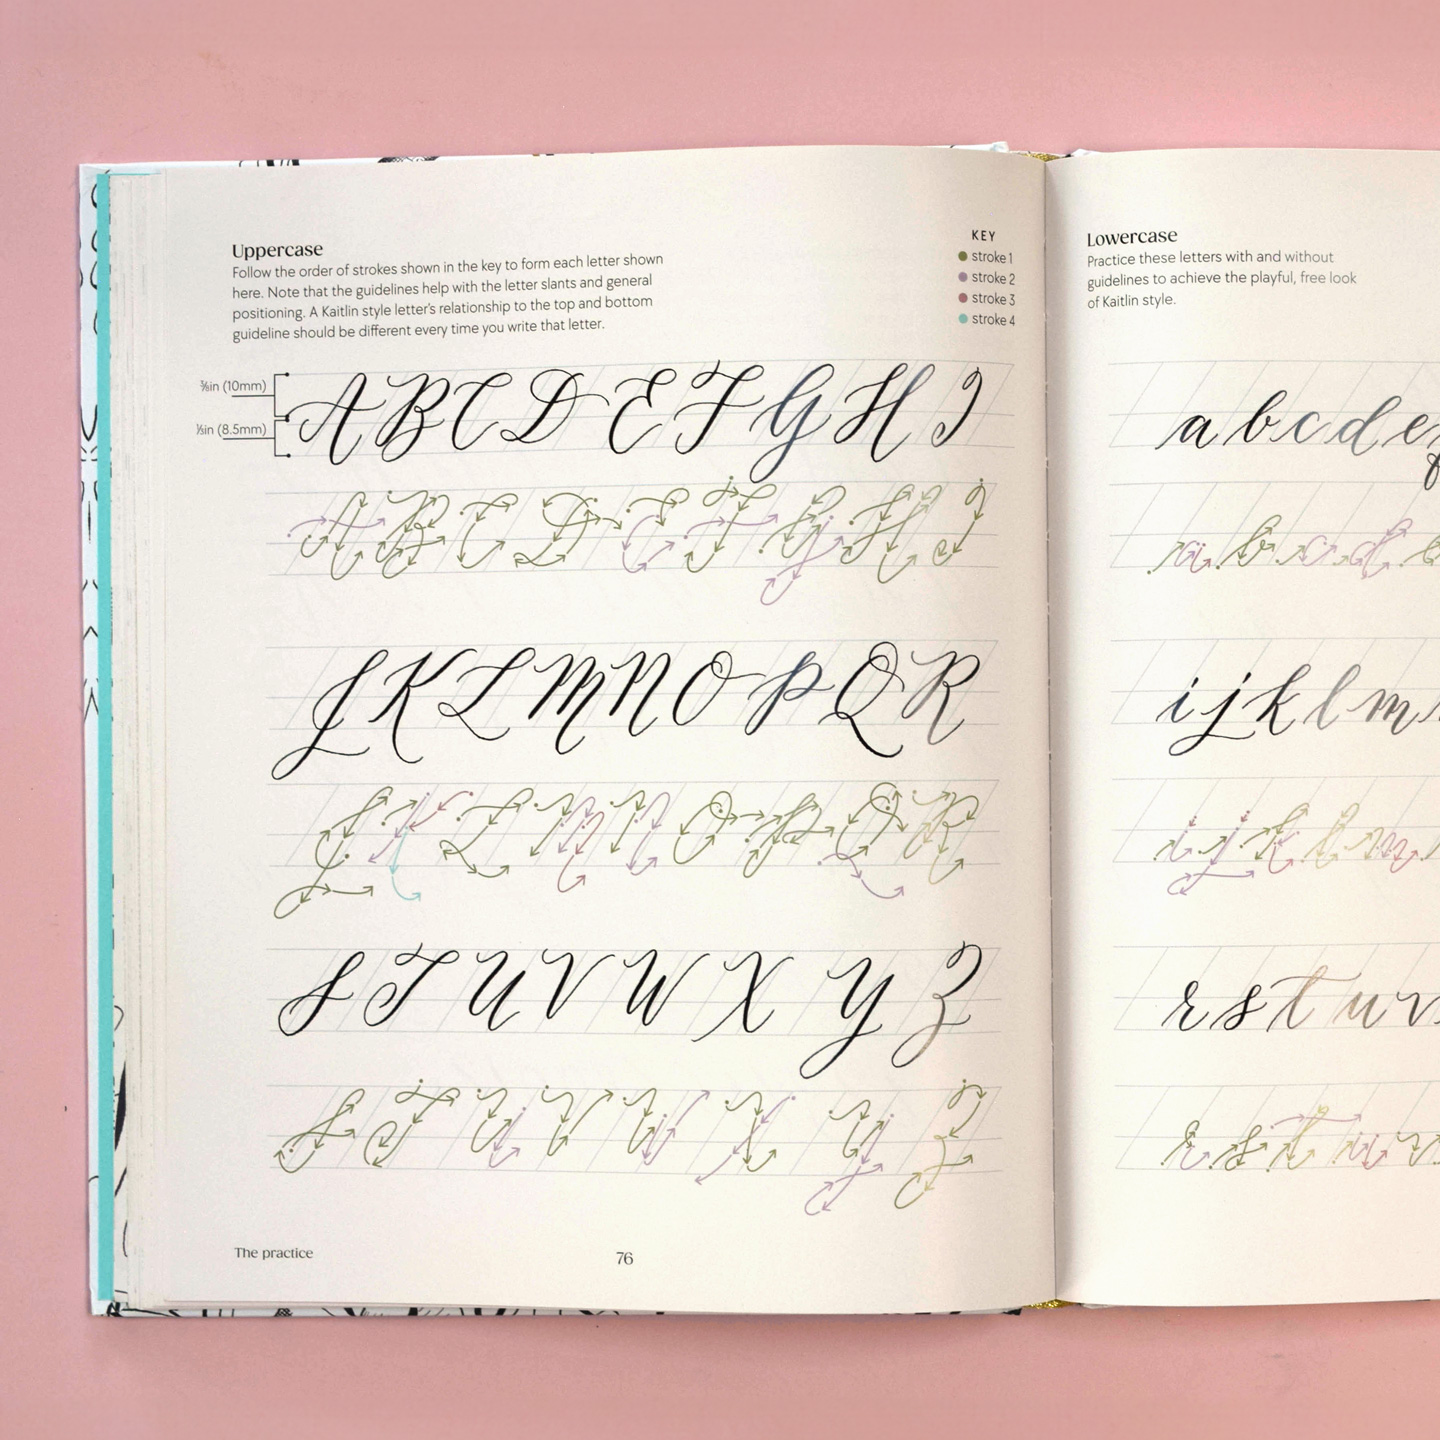 Uppercase
Follow the order of strokes shown in the key to form each letter shown
here. Note that the guidelines help with the letter slants and general
positioning. A Kaitlin style letter's relationship to the top and bottom
guideline should be different every time you write that letter.
KEY
stroke 1
stroke 2
stroke 3
stroke 4
⅜in (10mm)
⅓in (8.5mm)
A B C D E F G H I
A B C D E F G H I
J K L M N O P Q R
J K L M N O P Q R
S T U V W X Y Z
S T U V W X Y Z
The practice
76
Lowercase
Practice these letters with and without
guidelines to achieve the playful, free look
of Kaitlin style.
a b c d e
a b c d
i j k l m
i j k l m
r s t u v
r s t u v